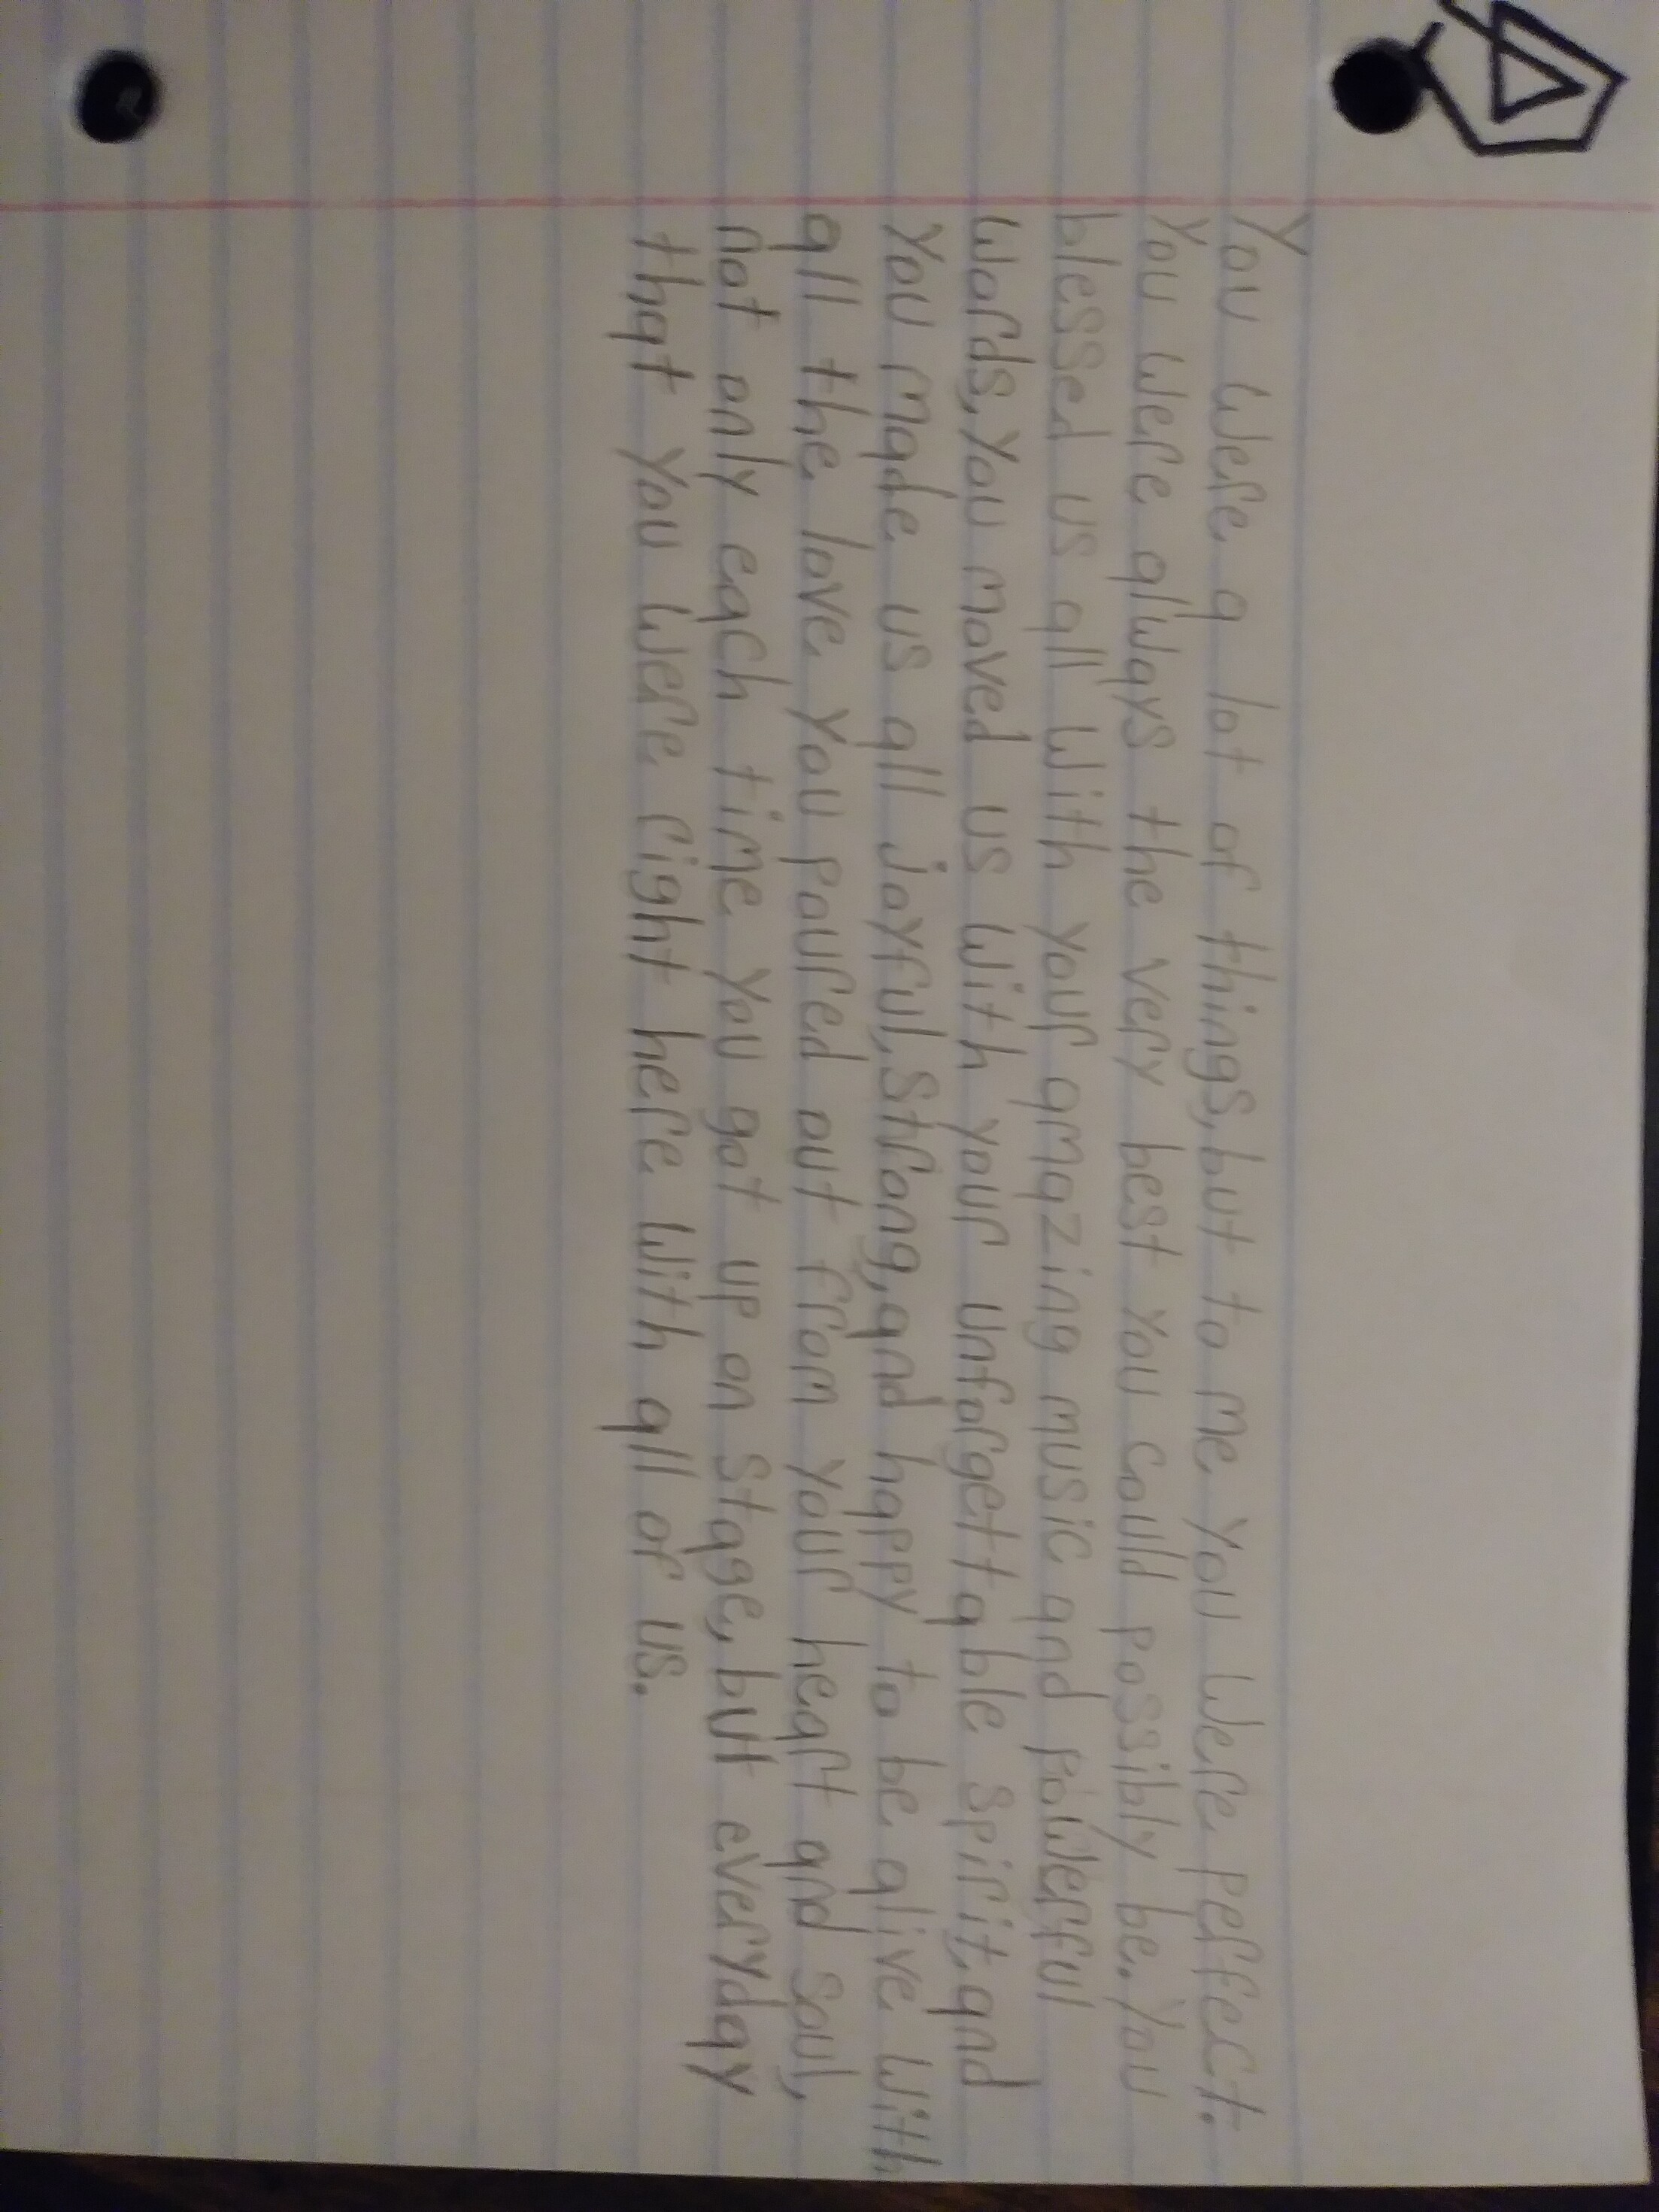 You were a lot of things, but to me you were perfect.
You were always the very best you could possibly be. You
blessed us all with your amazing music and powerful
words, you moved us with your unforgettable spirit, and
you made us all joyful, strong, and happy to be alive with
all the love you poured out from your heart and soul,
not only each time you got up on stage, but everyday
that you were right here with all of us.